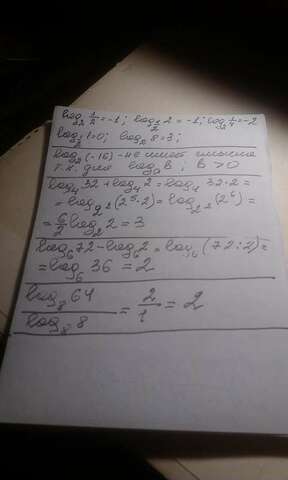 log₂ 1/2 = -1; log_{1/2} 2 = -1; log₂ 1/4 = -2
log₂ 1 = 0; log₂ 8 = 3;
log₂ (-16) - не имеет смысла
т.к. для log_a b; b > 0
log₄ 32 + log₄ 2 = log₄ 32·2 =
= log_{2²} (2⁵·2) = log_{2²} (2⁶) =
= 6/2 log₂ 2 = 3
log₆ 72 - log₆ 2 = log₆ (72:2) =
= log₆ 36 = 2
log₈ 64 / log₈ 8 = 2/1 = 2